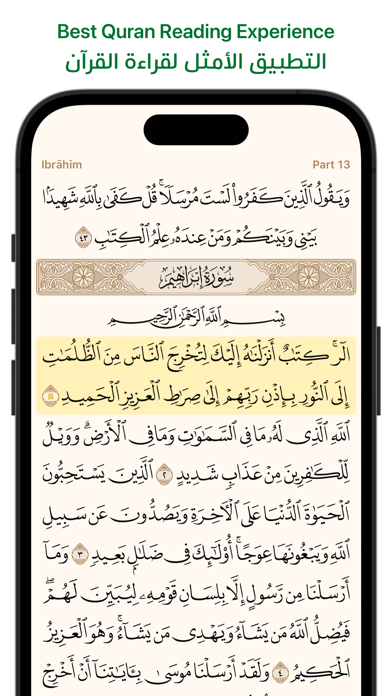 Best Quran Reading Experience
التطبيق الأمثل لقراءة القرآن
Ibrāhīm Part 13
وَيَقُولُ ٱلَّذِينَ كَفَرُواْ لَسۡتَ مُرۡسَلٗاۚ قُلۡ كَفَىٰ بِٱللَّهِ شَهِيدَۢا
بَيۡنِي وَبَيۡنَكُمۡ وَمَنۡ عِندَهُۥ عِلۡمُ ٱلۡكِتَٰبِ ٤٣
سُورَةُ إِبۡرَاهِيمَ
بِسۡمِ ٱللَّهِ ٱلرَّحۡمَٰنِ ٱلرَّحِيمِ
الٓرۚ كِتَٰبٌ أَنزَلۡنَٰهُ إِلَيۡكَ لِتُخۡرِجَ ٱلنَّاسَ مِنَ ٱلظُّلُمَٰتِ
إِلَى ٱلنُّورِ بِإِذۡنِ رَبِّهِمۡ إِلَىٰ صِرَٰطِ ٱلۡعَزِيزِ ٱلۡحَمِيدِ ١
ٱللَّهِ ٱلَّذِي لَهُۥ مَا فِي ٱلسَّمَٰوَٰتِ وَمَا فِي ٱلۡأَرۡضِۗ وَوَيۡلٞ
لِّلۡكَٰفِرِينَ مِنۡ عَذَابٖ شَدِيدٍ ٢ ٱلَّذِينَ يَسۡتَحِبُّونَ
ٱلۡحَيَوٰةَ ٱلدُّنۡيَا عَلَى ٱلۡأٓخِرَةِ وَيَصُدُّونَ عَن سَبِيلِ
ٱللَّهِ وَيَبۡغُونَهَا عِوَجًاۚ أُوْلَٰٓئِكَ فِي ضَلَٰلِۭ بَعِيدٖ ٣ وَمَآ
أَرۡسَلۡنَا مِن رَّسُولٍ إِلَّا بِلِسَانِ قَوۡمِهِۦ لِيُبَيِّنَ لَهُمۡۖ
فَيُضِلُّ ٱللَّهُ مَن يَشَآءُ وَيَهۡدِي مَن يَشَآءُۚ وَهُوَ ٱلۡعَزِيزُ
ٱلۡحَكِيمُ ٤ وَلَقَدۡ أَرۡسَلۡنَا مُوسَىٰ بِـَٔايَٰتِنَآ أَنۡ أَخۡرِجۡ